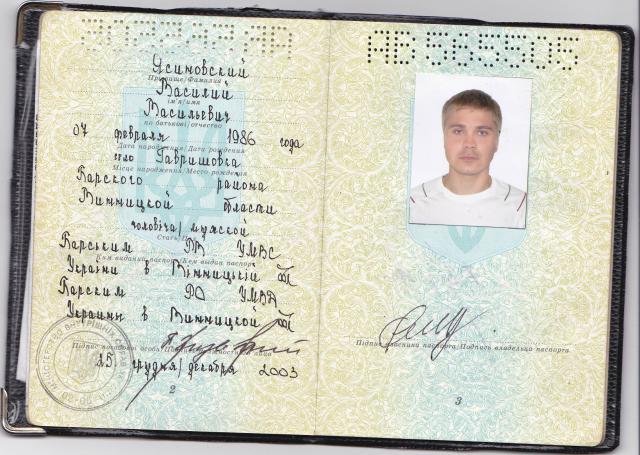 Ясиновский
Прізвище/Фамилия
Василий
ім'я/имя
Васильевич
по батькові/отчество
07 февраля 1986 года
Дата народження/Дата рождения
село Гавришовка
Місце народження/Место рождения
Барского района
Винницкой области
чоловіча/мужской
Стать
Барським РВ УМВС
Ким виданий паспорт/Кем выдан паспорт
України в Вінницькій обл
Барским РО УМВД
Украины в Винницкой обл
Підпис посадової особи
25. грудня/декабря 2003
2
МІНІСТЕРСТВО ВНУТРІШНІХ СПРАВ
АВ 565505
Підпис власника паспорта/Подпись владельца паспорта
3